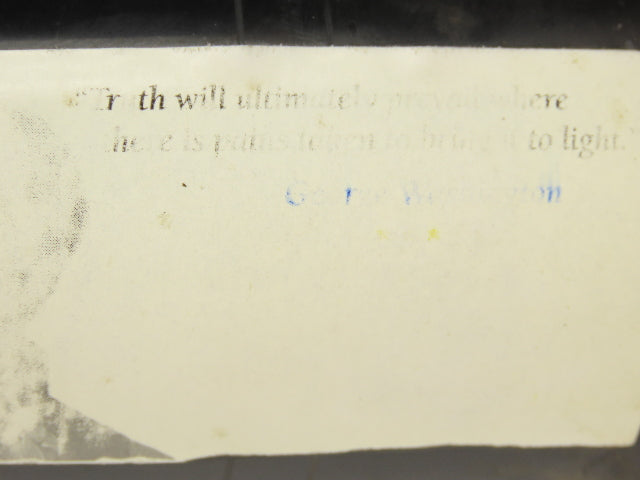 "Truth will ultimately prevail where
there is pains taken to bring it to light."
George Washington